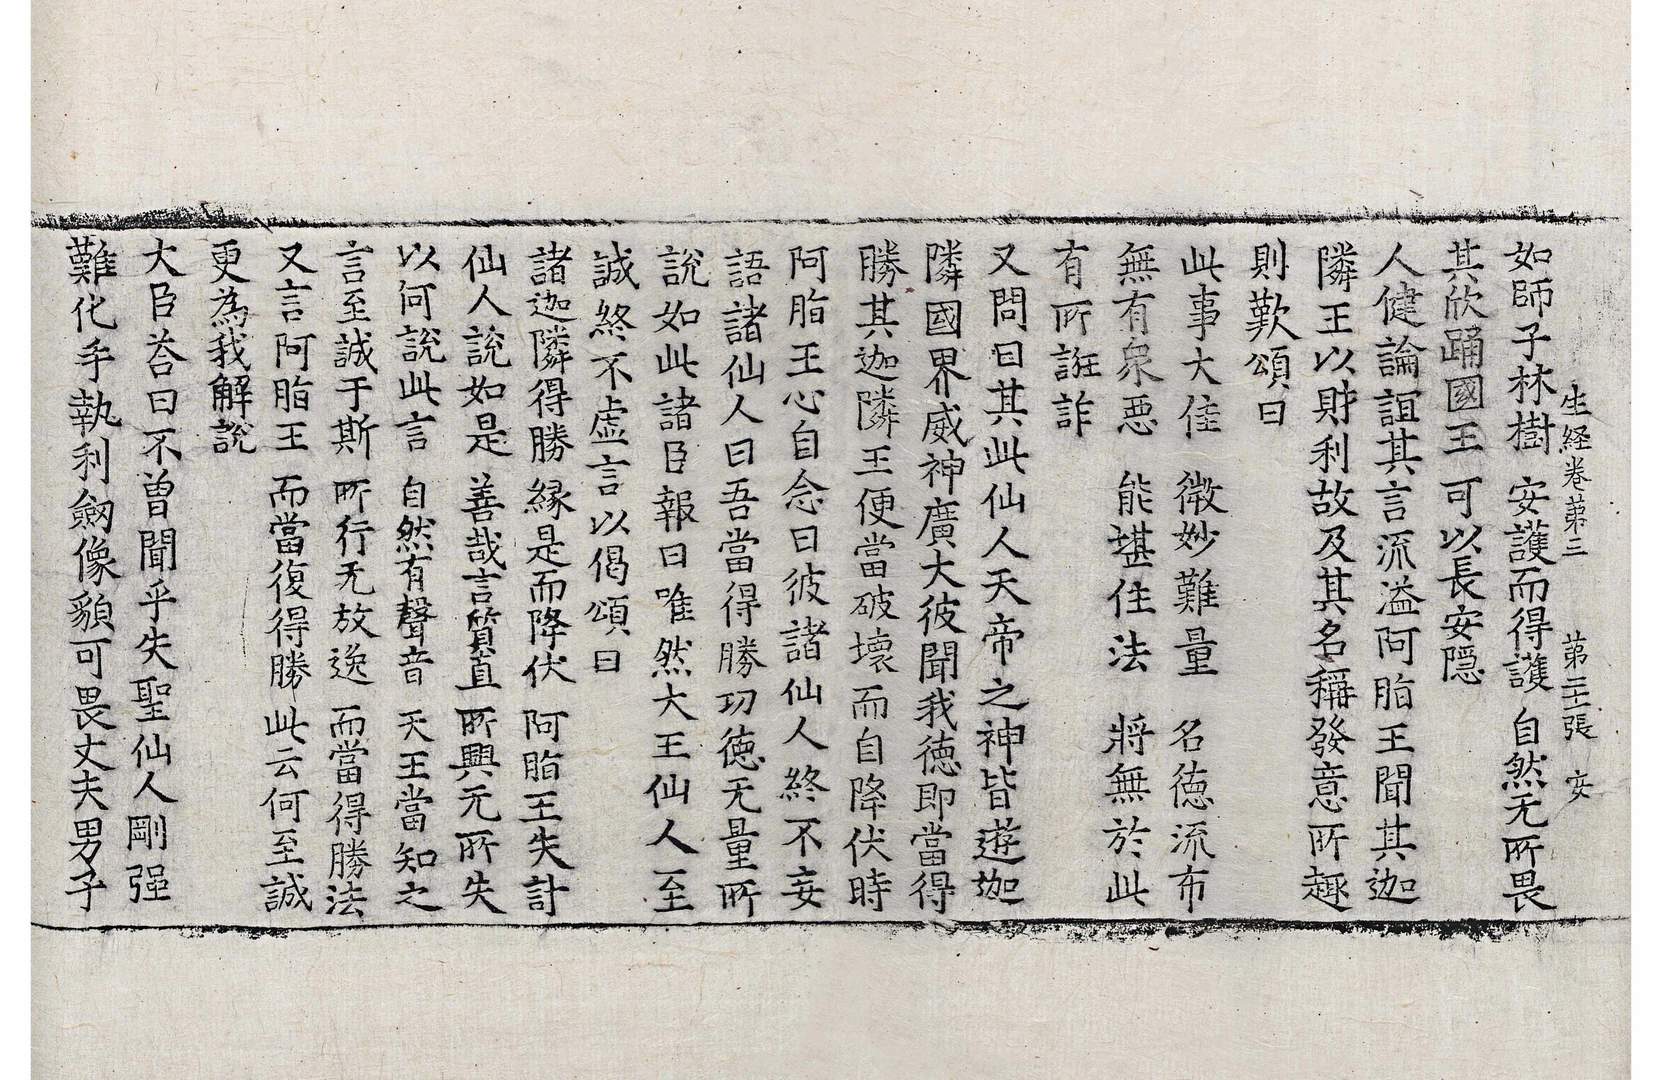 生経卷苐三　苐二十張　安
如師子林樹　安護而得護　自然无所畏
其欣踊國王　可以長安隱
人健論誼其言流溢阿脂王聞其迦
隣王以財利故及其名稱發意所趣
則歎頌曰
此事大佳　微妙難量　名德流布
無有衆惡　能堪住法　將無於此
有所誑詐
又問曰其此仙人天帝之神皆遊迦
隣國界威神廣大彼聞我德即當得
勝其迦隣王便當破壞而自降伏時
阿脂王心自念曰彼諸仙人終不妄
語諸仙人曰吾當得勝功德无量所
說如此諸臣報曰唯然大王仙人至
誠終不虛言以偈頌曰
諸迦隣得勝　縁是而降伏　阿脂王失計
仙人說如是　善哉言質直　所興无所失
以何說此言　自然有聲音　天王當知之
言至誠于斯　所行无放逸　而當得勝法
又言阿脂王　而當復得勝　此云何至誠
更為我解說
大臣荅曰不曾聞乎失聖仙人剛强
難化手執利劒像貌可畏丈夫男子